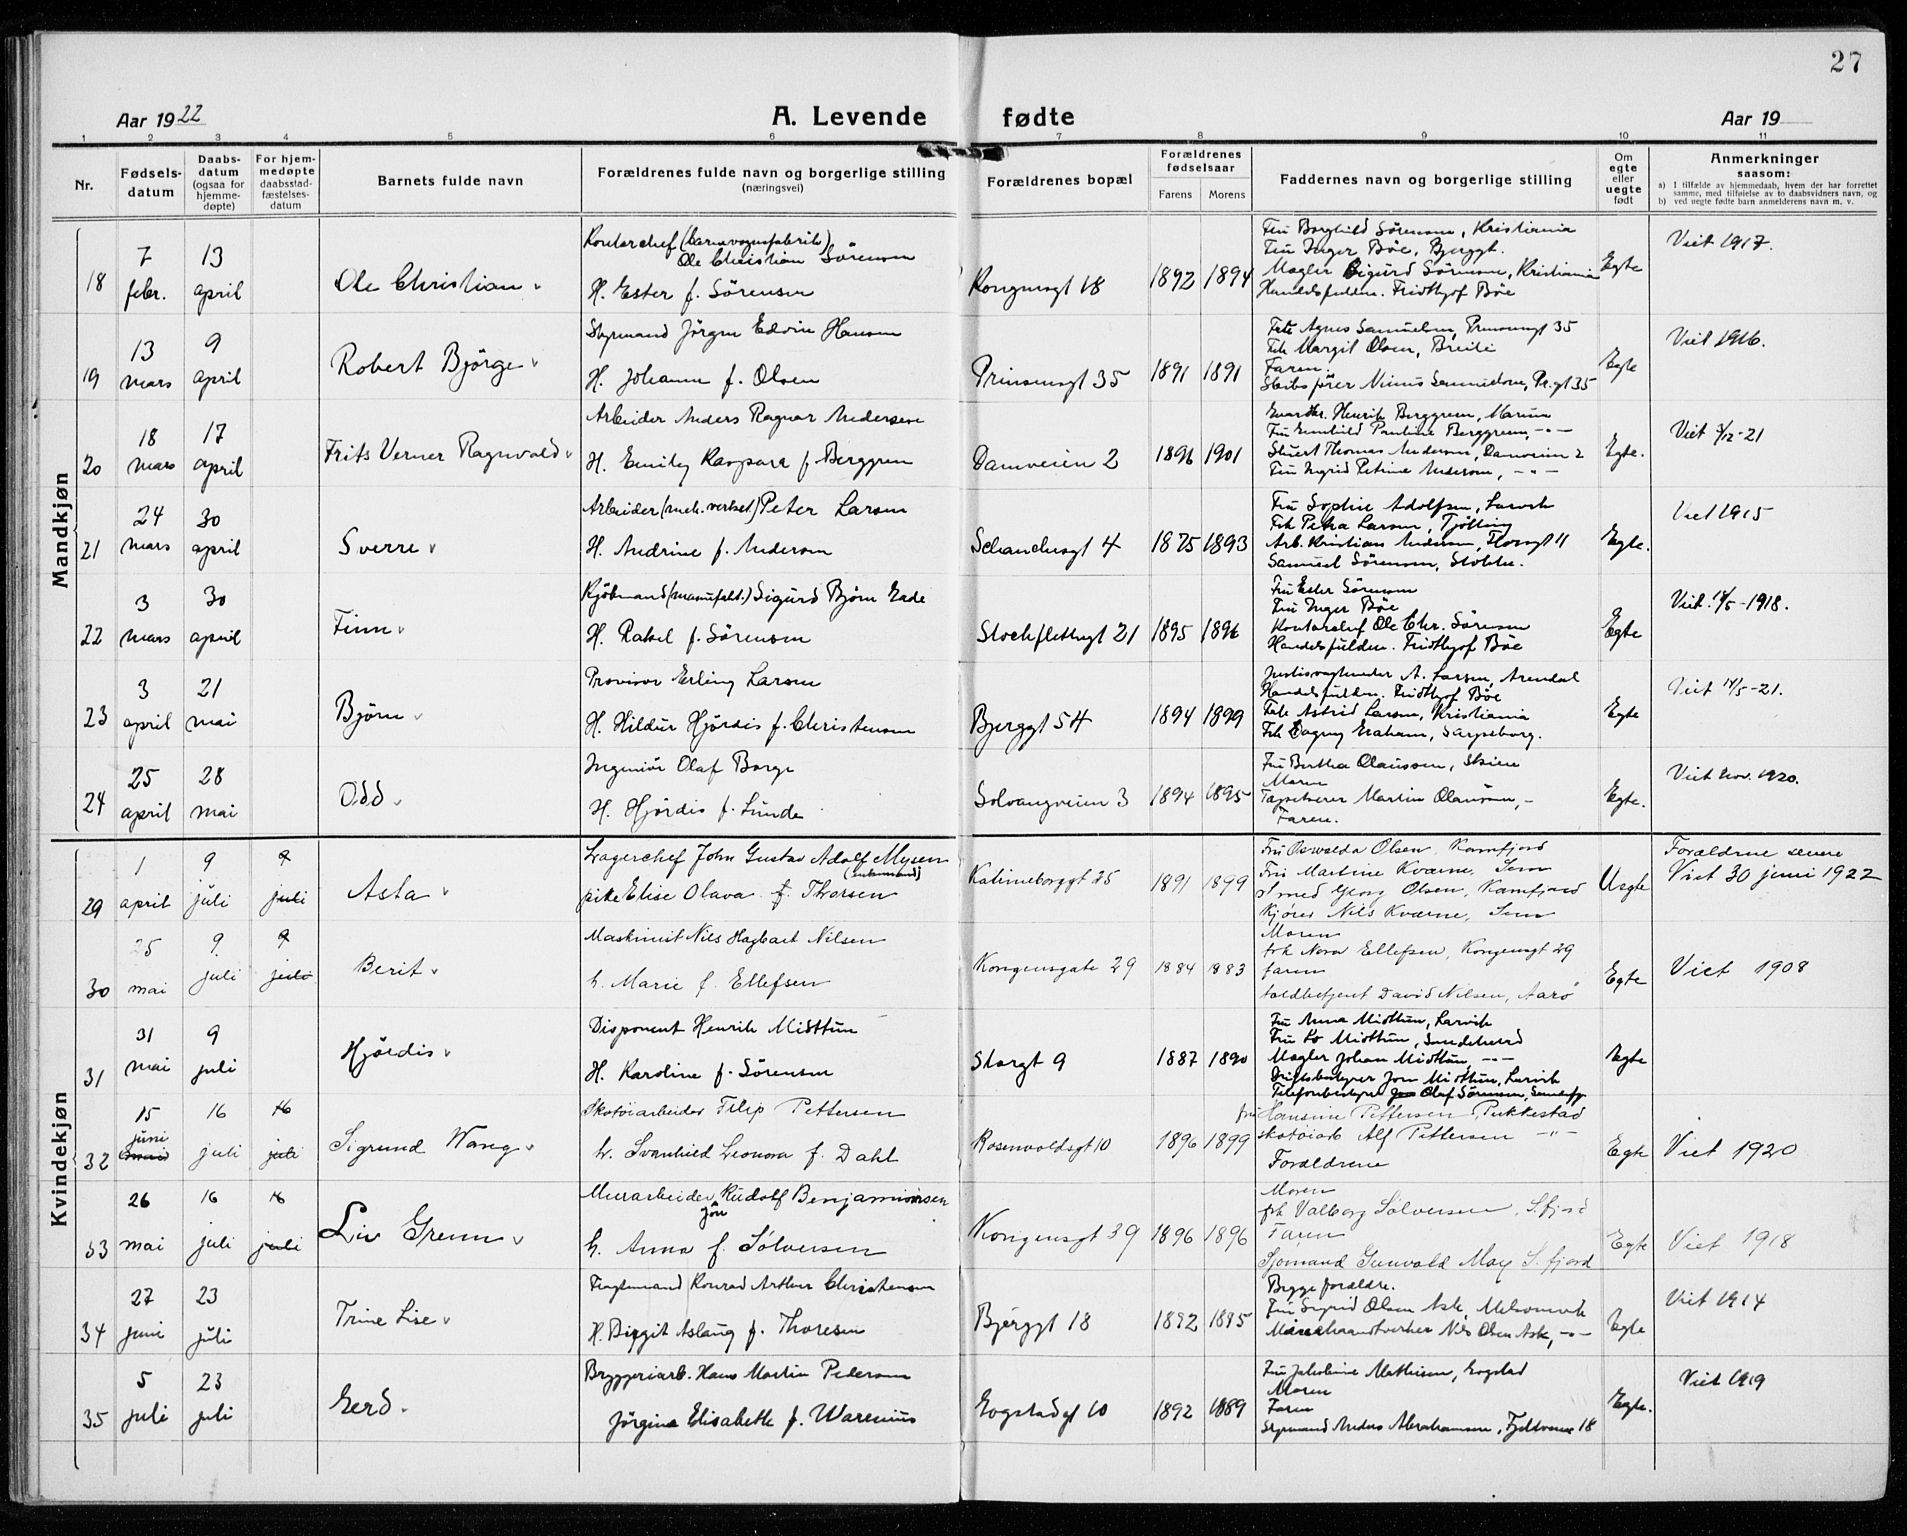 27
Aar 1922
A. Levende fødte
Aar 19
1 2 3 4 5 6 7 8 9 10 11
Nr.
Fødsels-
datum
Daabs-
datum
(ogsaa for
hjemme-
døpte)
For hjem-
medøpte
daabsstad-
fæstelses-
datum
Barnets fulde navn
Forældrenes fulde navn og borgerlige stilling
(næringsvei)
Forældrenes bopæl
Forældrenes
fødselsaar
Farens Morens
Faddernes navn og borgerlige stilling
Om
egte
eller
uegte
født
Anmerkninger
saasom:
a) I tilfælde av hjemmedaab, hvem der har forrettet
samme, med tilføielse av to daabsvidners navn, og
b) ved uegte fødte barn anmelderens navn m. v.
Mandkjøn
18
7 febr.
13 april
Ole Christian
Kontorchef (barnevognfabrik)
Ole Christian Sörensen
H. Ester f. Sörensen
Kongensgt 18
1892 1894
Fru Borghild Sörensen, Kristiania
Fru Inger Böe, Bjerggt.
Mægler Sigurd Sörensen, Kristiania
Handelsfuldm. Fridthjof Böe
Egte
Viet 1917.
19
13 mars
9 april
Robert Björge
Styrmand Jörgen Edvin Hansen
H. Johanne f. Olsen
Prinsensgt 35
1891 1891
Frk Agnes Samuelsen, Prinsensgt 35
Frk Margit Olsen, Breili
Faren.
Skibsförer Nimus Samuelsen, Pr.gt 35
Egte
Viet 1916.
20
18 mars
17 april
Frits Verner Ragnvald
Arbeider Anders Ragnar Andersen
H. Emily Kaspara f. Berggren
Damveien 2
1896 1901
Henrik Berggren,
Fru Gunhild Pauline Berggren, -"-
Stuert Thomas Andersen, Damveien 2
Fru Ingrid Petrine Andersen, -"-
Egte.
Viet 3/12-21
21
24 mars
30 april
Sverre
Arbeider (mek. verkset) Peter Larsen
H. Andrine f. Andersen
Schanchesgt 4
1875 1893
Fru Sophie Adolfsen, Larvik
Frk Petra Larsen, Tjölling
Arb. Kristian Andersen, Thorsgt 11
Samuel Sörensen, Stokke.
Egte.
Viet 1915
22
3 mars
30 april
Finn
Kjöbmand (manufakt.) Sigurd Björn Gade
H. Rakel f. Sörensen
Stockflethsgt 21
1895 1896
Fru Ester Sörensen
Fru Inger Böe
Kontorchef Ole Chr. Sörensen
Handelsfuldm. Fridthjof Böe
Egte
Viet 18/5-1918.
23
3 april
21 mai
Björn
Provisor Erling Larsen
H. Hildur Hjördis f. Christensen
Bjerggt 54
1894 1899
A. Larsen, Arendal
Handelsfuldm. Fridthjof Böe
Frk Astrid Larsen, Kristiania
Frk Dagny Graham, Sarpsborg.
Egte
Viet 14/5-21.
24
25 april
28 mai
Odd
Ingeniör Olaf Borge
H. Hjördis f. Lunde
Solvangveien 3
1894 1895
Fru Bertha Olaussen, Skien
Moren
Tapetserer Martin Olaussen, -
Faren.
Egte.
Viet Nov. 1920.
Kvindekjøn
29
1 april
9 juli
9 juli
Asta
Lagerchef John Gustav Adolf Mysen
(enkemand)
pike Elise Olava f. Thorsen
Katrineborggt 25
1891 1899
Fru Oswalda Olsen, Kamfjord
Fru Martine Kværne, Sem
Smed Georg Olsen, Kamfjord
Kjörer Nils Kværne, Sem
Uegte
Forældrene senere
Viet 30 juni 1922
30
25 mai
9 juli
9 juli
Berit
Maskinist Nils Hagbart Nilsen
h. Marie f. Ellefsen
Kongensgate 29
1884 1883
Moren
frk Nora Ellefsen, Kongensgt 29
faren
toldbetjent David Nilsen, Aarö
Egte
Viet 1908
31
31 mai
9 juli
Hjördis
Disponent Henrik Midttun
H. Karoline f. Sörensen
Storgt 9
1887 1890
Fru Anna Midttun, Larvik
Fru Lo Midttun, Sandeherred
Mægler Johan Midttun, -"-
Driftsbestyrer Jom Midttun, Larvik
Telefonbestyrer Olaf Sörensen, Sandefj.
Egte
32
15 juni mai
16 juli
16 juli
Sigrund Wang
Skotöiarbeider Filip Pettersen
h. Svanhild Leonora f. Dahl
Rosenvoldsgt 10
1896 1899
fru Hansine Pettersen Pukkestad
skotöiarb Alf Pettersen -"-
Forældrene
Egte
Viet 1920
33
26 mai
16 juli
16 juli
Liv Grenn
Murarbeider Rudolf Benjaminsen
Jön
h. Anna f. Sölversen
Kongensgt 39
1896 1896
Moren
frk Valborg Sölversen, S.fjord
Faren
Sjömand Gunvald Moy S.fjord
Egte
Viet 1918
34
27 juni
23 juli
Trine Lise
Fragtemand Konrad Arthur Christensen
H. Birgit Aslaug f. Thoresen
Bjerggt 18
1892 1895
Begge forældre.
Fru Sigrid Olsen Ask, Melsomvik
Nils Olsen Ask, -"-
Egte
Viet 1914
35
5 juli
23 juli
Gerd
Bryggeriarb. Hans Martin Pedersen
Jörgine Elisabeth f. Warenius
Gogstadgt 10
1892 1889
Fru Jakobine Mathisen, Gogstad
Moren
Faren
Styrmand Anders Abrahamsen, Fjeldveien 18
Egte.
Viet 1919